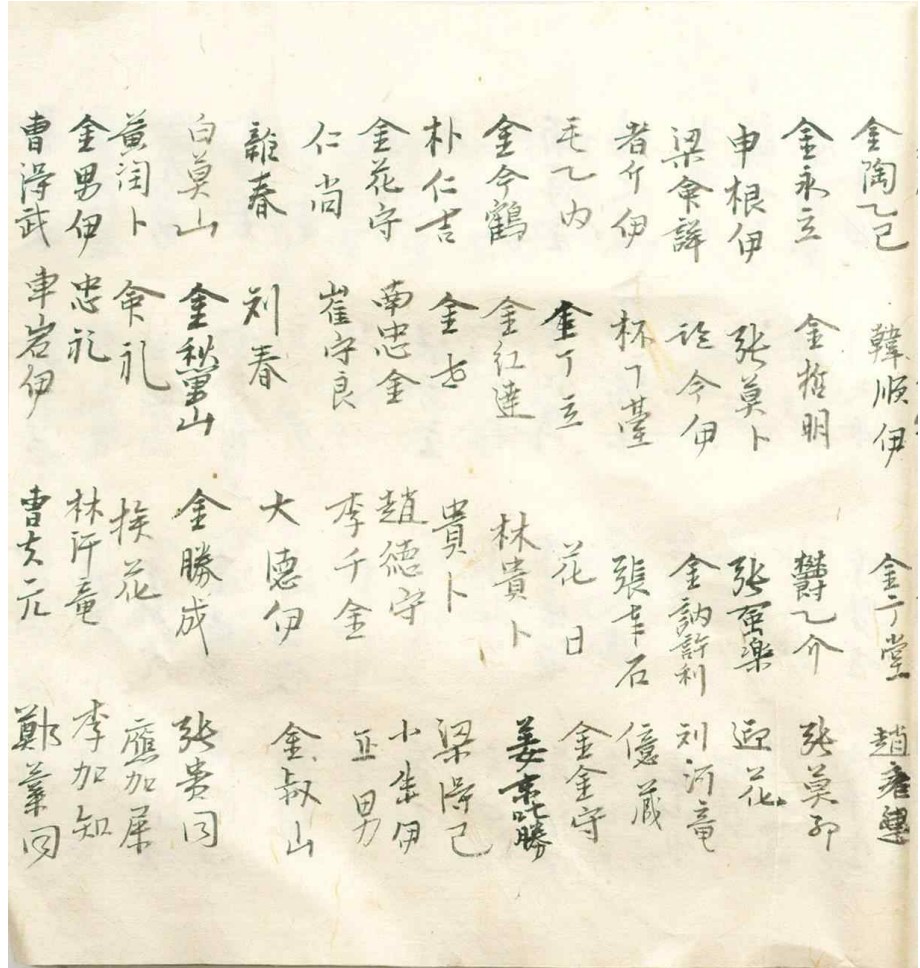 金陶乙已 韓順伊 金丁堂 趙
金永立 金哲明 欝乙介 張莫卯
申根伊 張莫卜 張 迎花
梁命詳 今伊 金訥許利 刘汗竜
者斤伊 丁臺 張幸石 億蔵
毛乙内 金丁立 花日 金金守
金今鶴 金红達 林貴卜 姜京叱勝
朴仁吉 金 貴卜 梁得已
金花守 南忠金 趙德守 小朱伊
仁尚 崔守良 李千金 正男
龍春 刘春 大德伊 金叔山
白莫山 金山 金勝成 張贵同
黄閏卜 命礼 花 應加
金男伊 忠礼 林汗竜 李加知
曺得武 車岩伊 曺元 鄭葉同